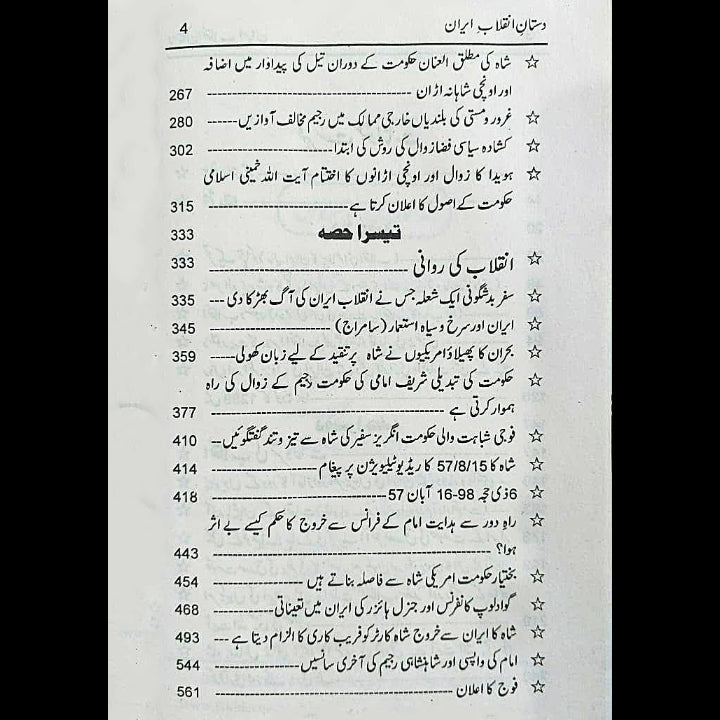 دستانِ انقلابِ ایران 4
☆ شاہ کی مطلق العنان حکومت کے دوران تیل کی پیداوار میں اضافہ
اور اونچی شاہانہ اڑان ---------- 267
☆ غرور و مستی کی بلندیاں خارجی ممالک میں رجیم مخالف آوازیں ------ 280
☆ کشادہ سیاسی فضا زوال کی روش کی ابتدا ---------- 302
☆ ہویدا کا زوال اور اونچی اڑانوں کا اختتام آیت اللہ خمینی اسلامی
حکومت کے اصول کا اعلان کرتا ہے ---------- 315
تیسرا حصہ 333
☆ انقلاب کی روانی ---------- 333
☆ سفر بدشگونی ایک شعلہ جس نے انقلاب ایران کی آگ بھڑکا دی --- 335
☆ ایران اور سرخ و سیاہ استعمار (سامراج) ---------- 345
☆ بحران کا پھیلاؤ امریکیوں نے شاہ پر تنقید کے لیے زبان کھولی ----- 359
☆ حکومت کی تبدیلی شریف امامی کی حکومت رجیم کے زوال کی راہ
ہموار کرتی ہے ---------- 377
☆ فوجی شباہت والی حکومت انگریز سفیر کی شاہ سے تیز و تند گفتگوئیں -- 410
☆ شاہ کا 57/8/15 کا ریڈیو ٹیلیویژن پر پیغام ---------- 414
☆ 6 ذی حجہ 98-16 آبان 57 ---------- 418
☆ راہِ دور سے ہدایت امام کے فرانس سے خروج کا حکم کیسے بے اثر
ہوا؟ ---------- 443
☆ بختیار حکومت امریکی شاہ سے فاصلہ بناتے ہیں ---------- 454
☆ گوادلوپ کانفرنس اور جنرل ہائزر کی ایران میں تعیناتی ---------- 468
☆ شاہ کا ایران سے خروج شاہ کارٹر کو فریب کاری کا الزام دیتا ہے --- 493
☆ امام کی واپسی اور شاہنشاہی رجیم کی آخری سانسیں ---------- 544
☆ فوج کا اعلان ---------- 561